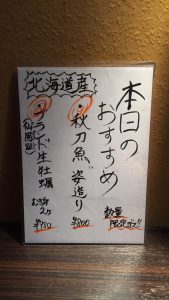 本日の
おすすめ
数量
限定です!!
北海道産
・秋刀魚姿造り
¥800
ブランド生牡蠣
(仙鳳趾)
¥700